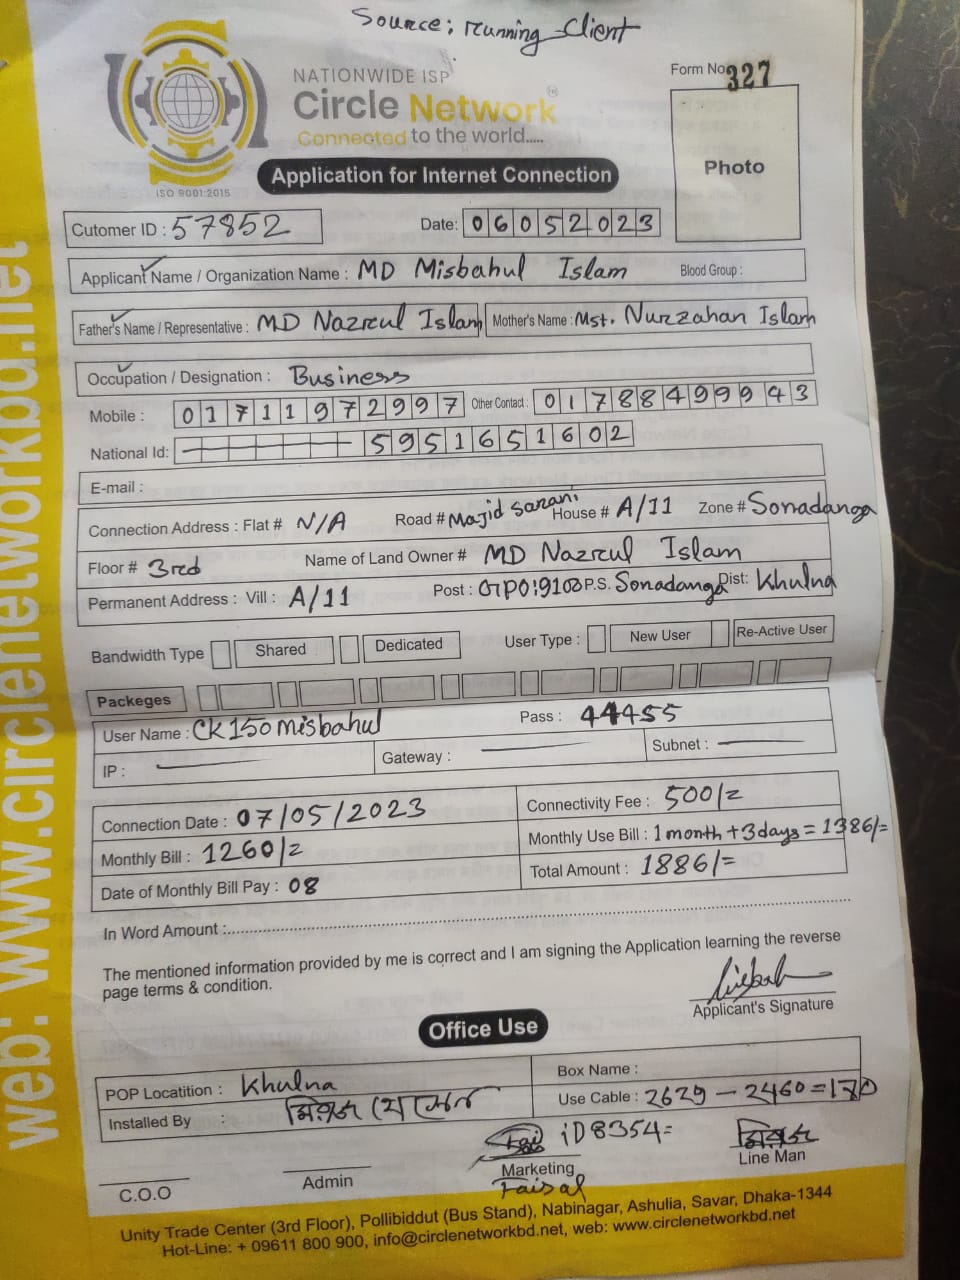 Source: running Client
NATIONWIDE ISP
Circle Network
Connected to the world.....
ISO 9001:2015
Form No 327
Photo
Application for Internet Connection
Cutomer ID : 57852 Date: 06052023
Applicant Name / Organization Name : MD Misbahul Islam Blood Group :
Father's Name / Representative : MD Nazrul Islam Mother's Name : Mst. Nurzahan Islam
Occupation / Designation : Business
Mobile : 01711972997 Other Contact : 01788499943
National Id: 5951651602
E-mail :
Connection Address : Flat # N/A Road # Majid Sarani House # A/11 Zone # Sonadanga
Floor # 3rd Name of Land Owner # MD Nazrul Islam
Permanent Address : Vill : A/11 Post : GPO:9100 P.S. Sonadanga Dist: Khulna
Bandwidth Type Shared Dedicated User Type : New User Re-Active User
Packeges
User Name : CK150misbahul Pass : 44455
IP : Gateway : Subnet :
Connection Date : 07/05/2023 Connectivity Fee : 500/=
Monthly Bill : 1260/= Monthly Use Bill : 1 month + 3 days = 1386/=
Date of Monthly Bill Pay : 08 Total Amount : 1886/=
In Word Amount :
The mentioned information provided by me is correct and I am signing the Application learning the reverse
page terms & condition.
Applicant's Signature
Office Use
POP Locatition : Khulna Box Name :
Installed By : Use Cable : 2629 - 2460 = 170
iD 8354=
C.O.O Admin Marketing Line Man
Faisal
Unity Trade Center (3rd Floor), Pollibiddut (Bus Stand), Nabinagar, Ashulia, Savar, Dhaka-1344
Hot-Line: + 09611 800 900, info@circlenetworkbd.net, web: www.circlenetworkbd.net
web: www.circlenetworkbd.net